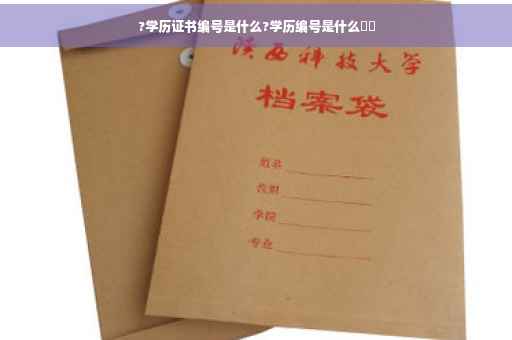 ?学历证书编号是什么?学历编号是什么▯▯
陕西科技大学
档案袋
姓名
学院
专业